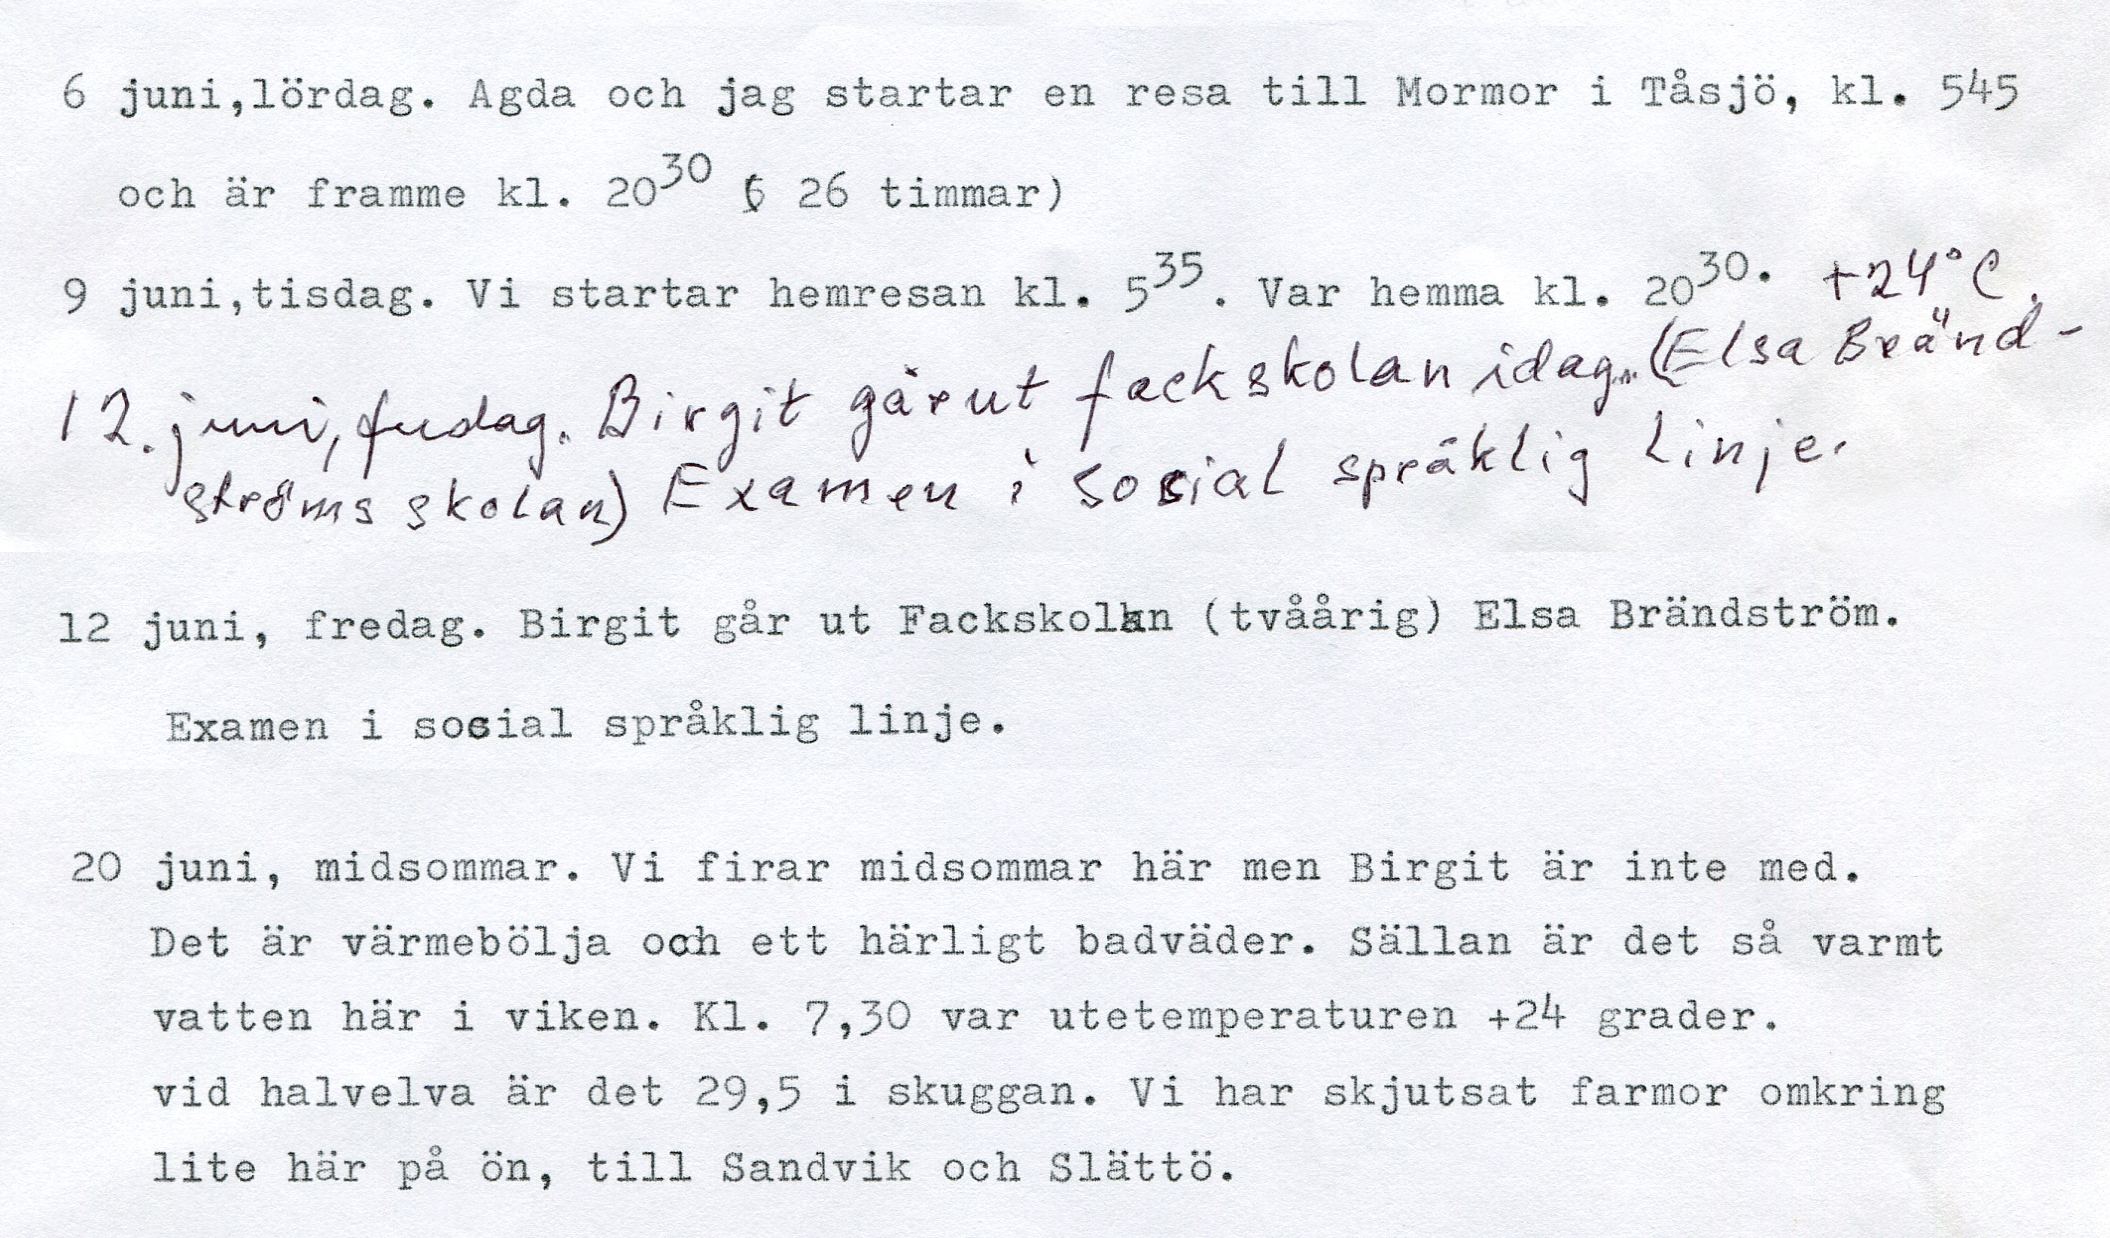 6 juni,lördag. Agda och jag startar en resa till Mormor i Tåsjö, kl. 545
och är framme kl. 20³⁰ ( 26 timmar)
9 juni,tisdag. Vi startar hemresan kl. 5³⁵. Var hemma kl. 20³⁰. +24°C.
12. juni, fredag. Birgit går ut fackskolan idag. (Elsa Bränd-
ströms skolan) Examen i social språklig linje.
12 juni, fredag. Birgit går ut Fackskolan (tvåårig) Elsa Brändström.
Examen i social språklig linje.
20 juni, midsommar. Vi firar midsommar här men Birgit är inte med.
Det är värmebölja och ett härligt badväder. Sällan är det så varmt
vatten här i viken. Kl. 7,30 var utetemperaturen +24 grader.
vid halvelva är det 29,5 i skuggan. Vi har skjutsat farmor omkring
lite här på ön, till Sandvik och Slättö.